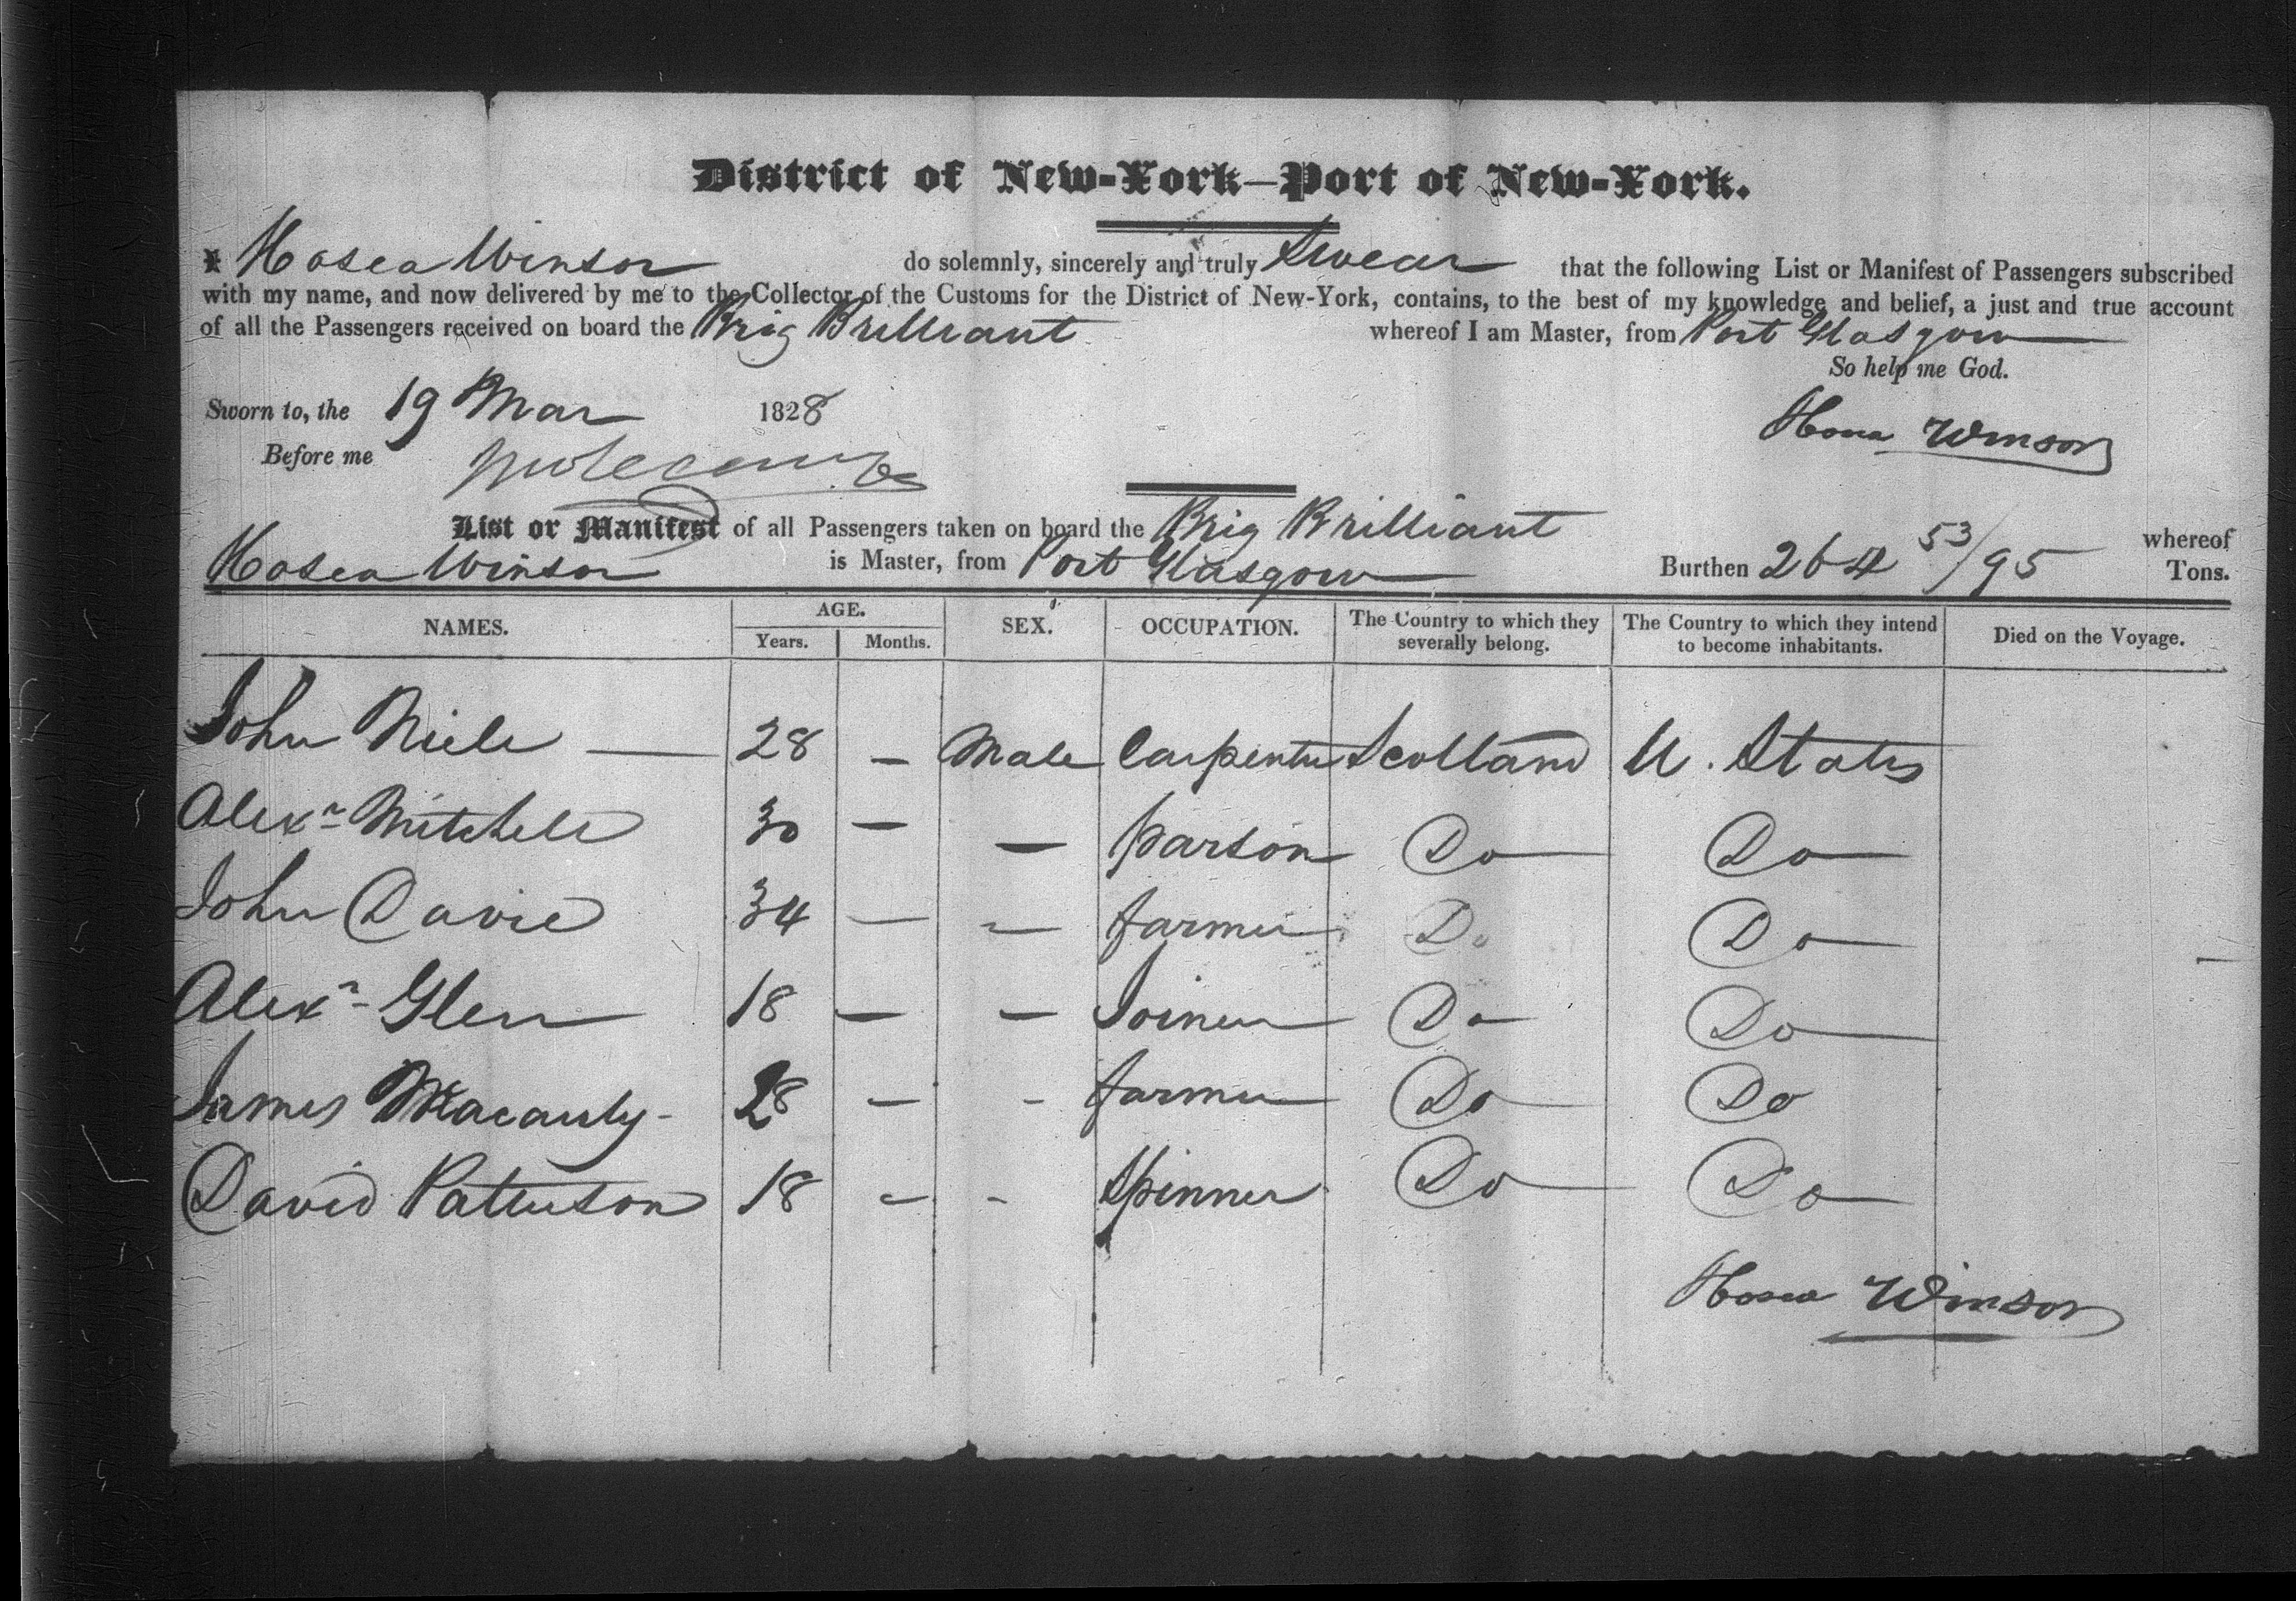 District of New-York—Port of New-York.
I Hosea Winsor do solemnly, sincerely and truly Swear that the following List or Manifest of Passengers subscribed
with my name, and now delivered by me to the Collector of the Customs for the District of New-York, contains, to the best of my knowledge and belief, a just and true account
of all the Passengers received on board the Brig Brilliant whereof I am Master, from Port Glasgow
So help me God.
Sworn to, the 19 Mar 1828
Hosea Winsor
Before me
List or Manifest of all Passengers taken on board the Brig Brilliant whereof
Hosea Winsor is Master, from Port Glasgow Burthen 264 53/95 Tons.
NAMES. AGE. SEX. OCCUPATION. The Country to which they severally belong. The Country to which they intend to become inhabitants. Died on the Voyage.
Years. Months.
John Niele — 28 — Male Carpenter Scotland U. States
Alexr Mitchell 30 — — parson Do Do
John Davie 34 — — farmer Do Do
Alexr Glen 18 — — Joiner Do Do
James Macauly - 28 — - farmer Do Do
David Patterson 18 - - Spinner Do Do
Hosea Winsor